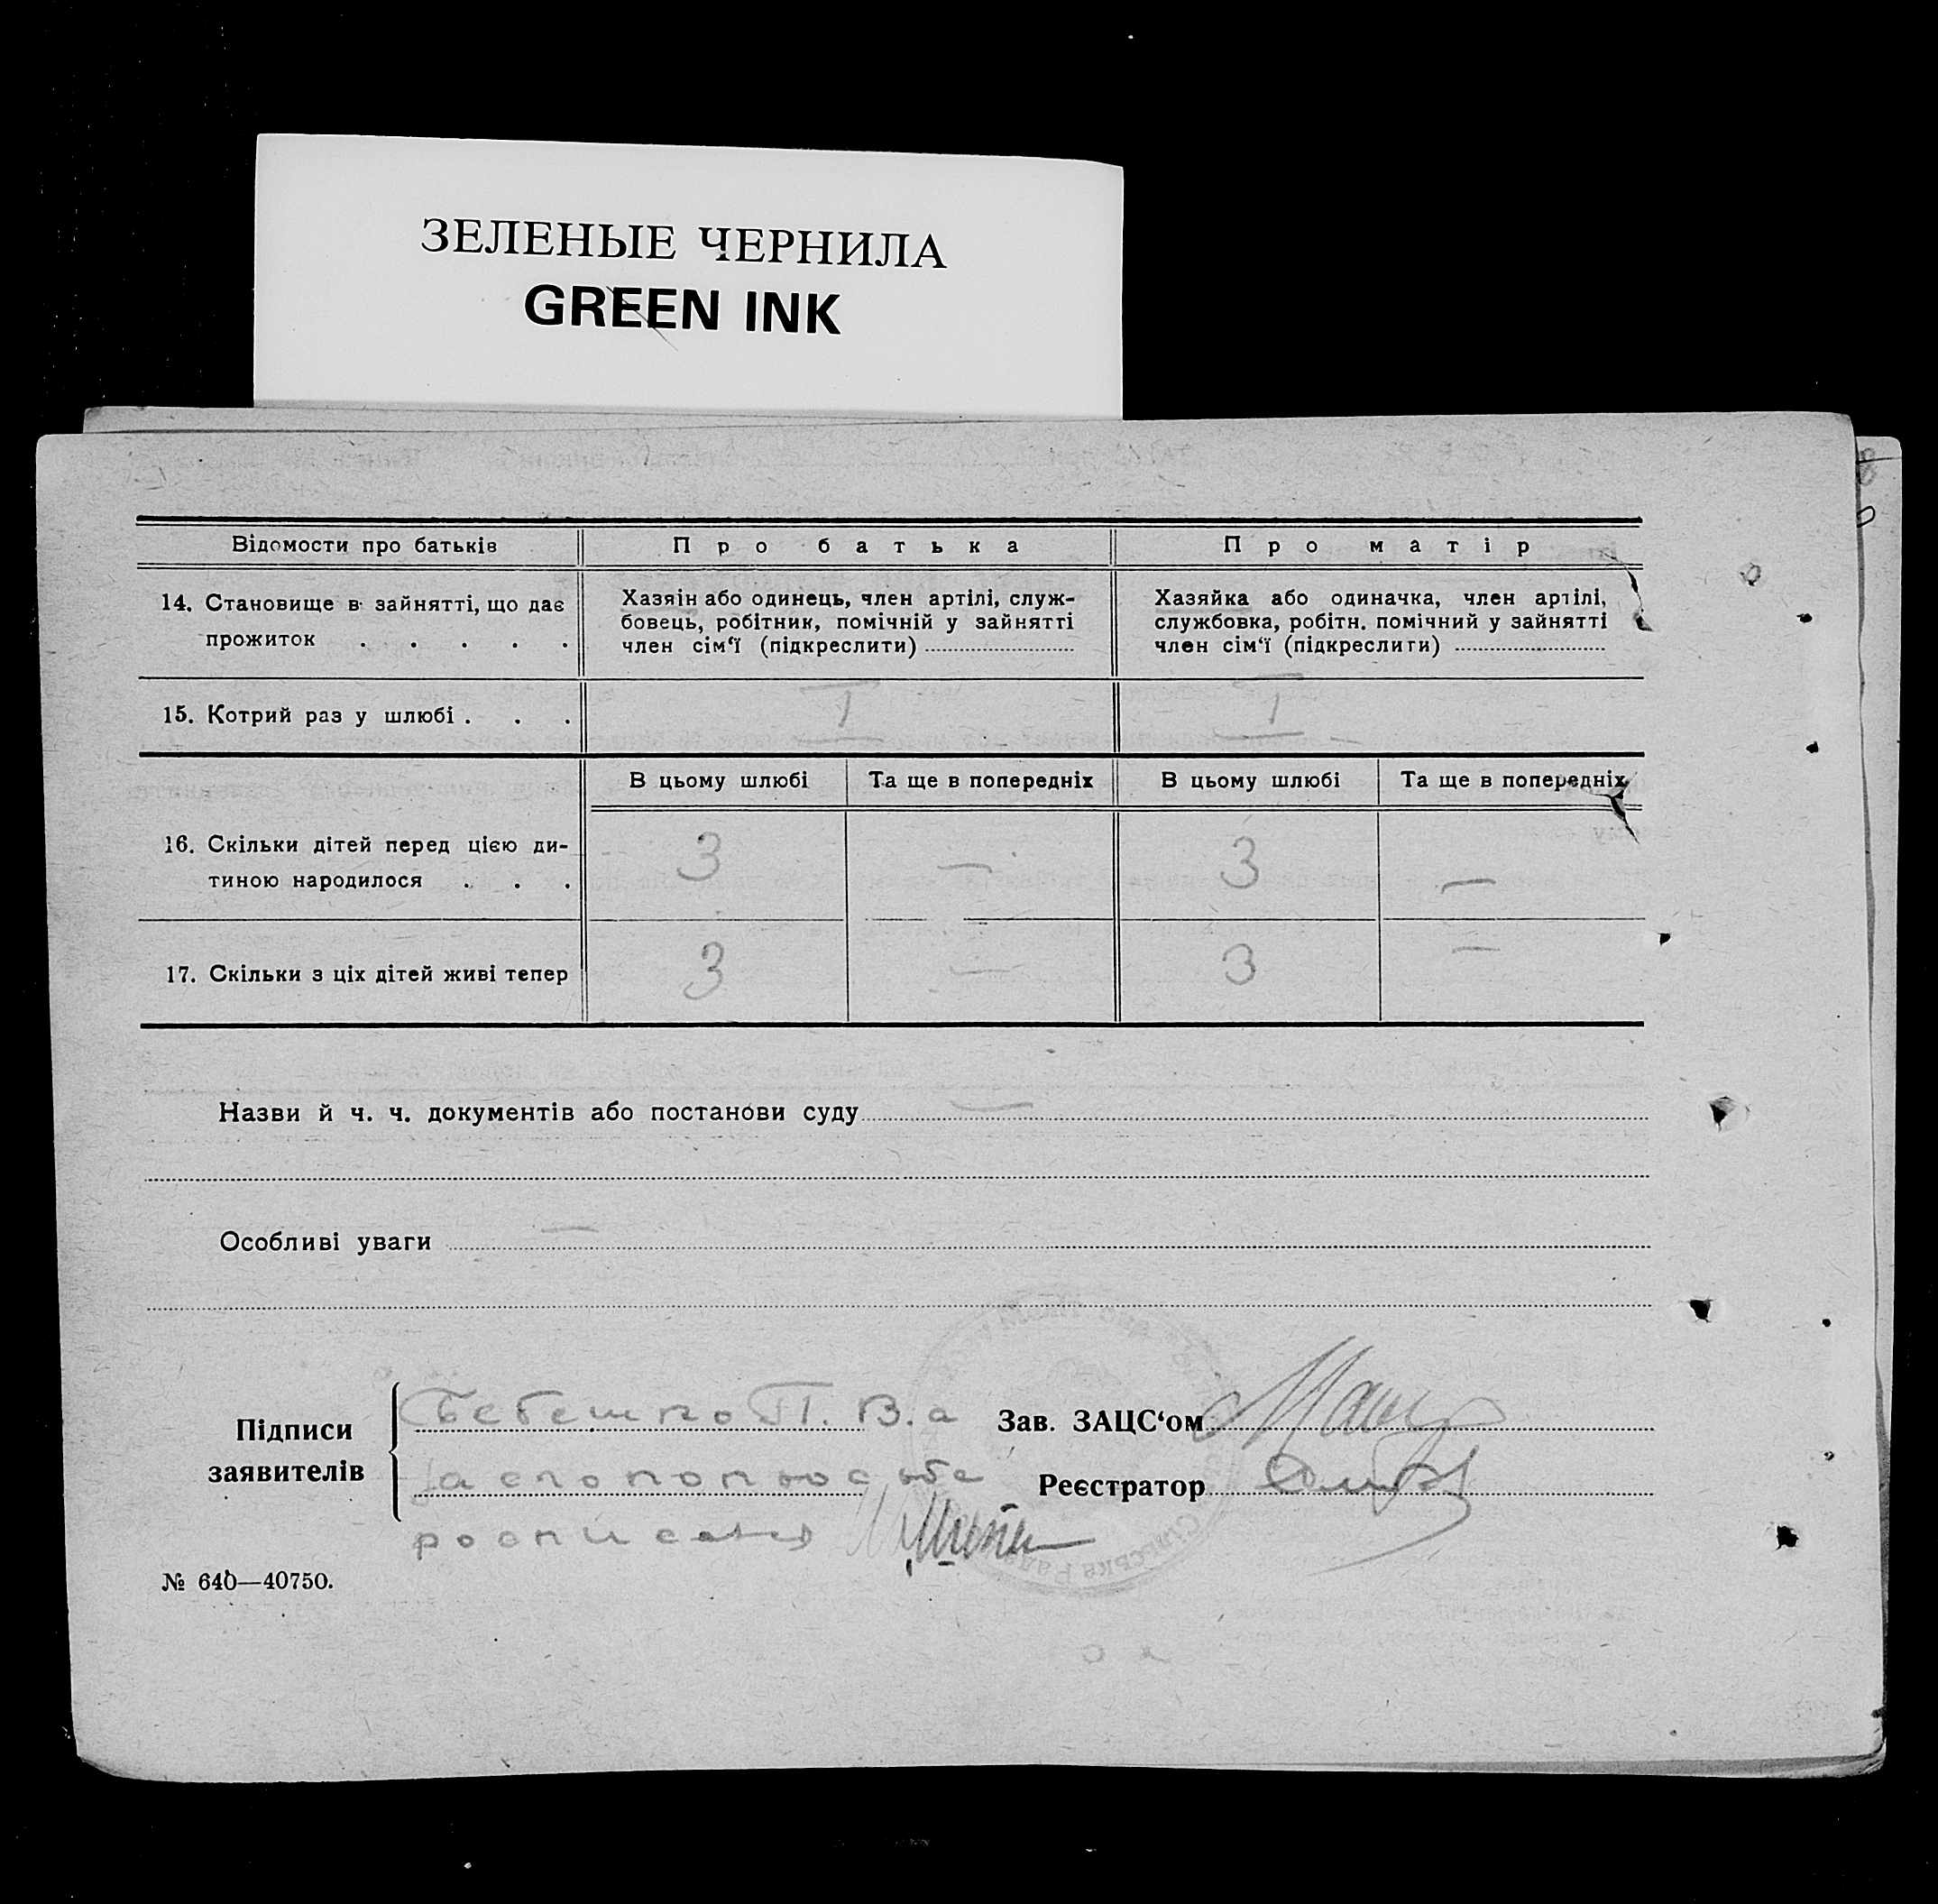 ЗЕЛЕНЫЕ ЧЕРНИЛА
GREEN INK
Відомости про батьків
Про батька
Про матір
14. Становище в зайнятті, що дає
прожиток . . . . .
Хазяін або одинець, член артілі, служ-
бовець, робітник, помічній у зайнятті
член сім‘ї (підкреслити)
Хазяйка або одиначка, член артілі,
службовка, робітн. помічний у зайнятті
член сім‘ї (підкреслити)
15. Котрий раз у шлюбі . . .
I
I
В цьому шлюбі
Та ще в попередніх
В цьому шлюбі
Та ще в попередніх
16. Скільки дітей перед цією ди-
тиною народилося . . .
3
—
3
—
17. Скільки з ціх дітей живі тепер
3
—
3
—
Назви й ч. ч. документів або постанови суду —
Особливі уваги —
Підписи
заявителів
Бебешко П. В. а
росписався
Зав. ЗАЦС‘ом
Реєстратор
№ 640—40750.